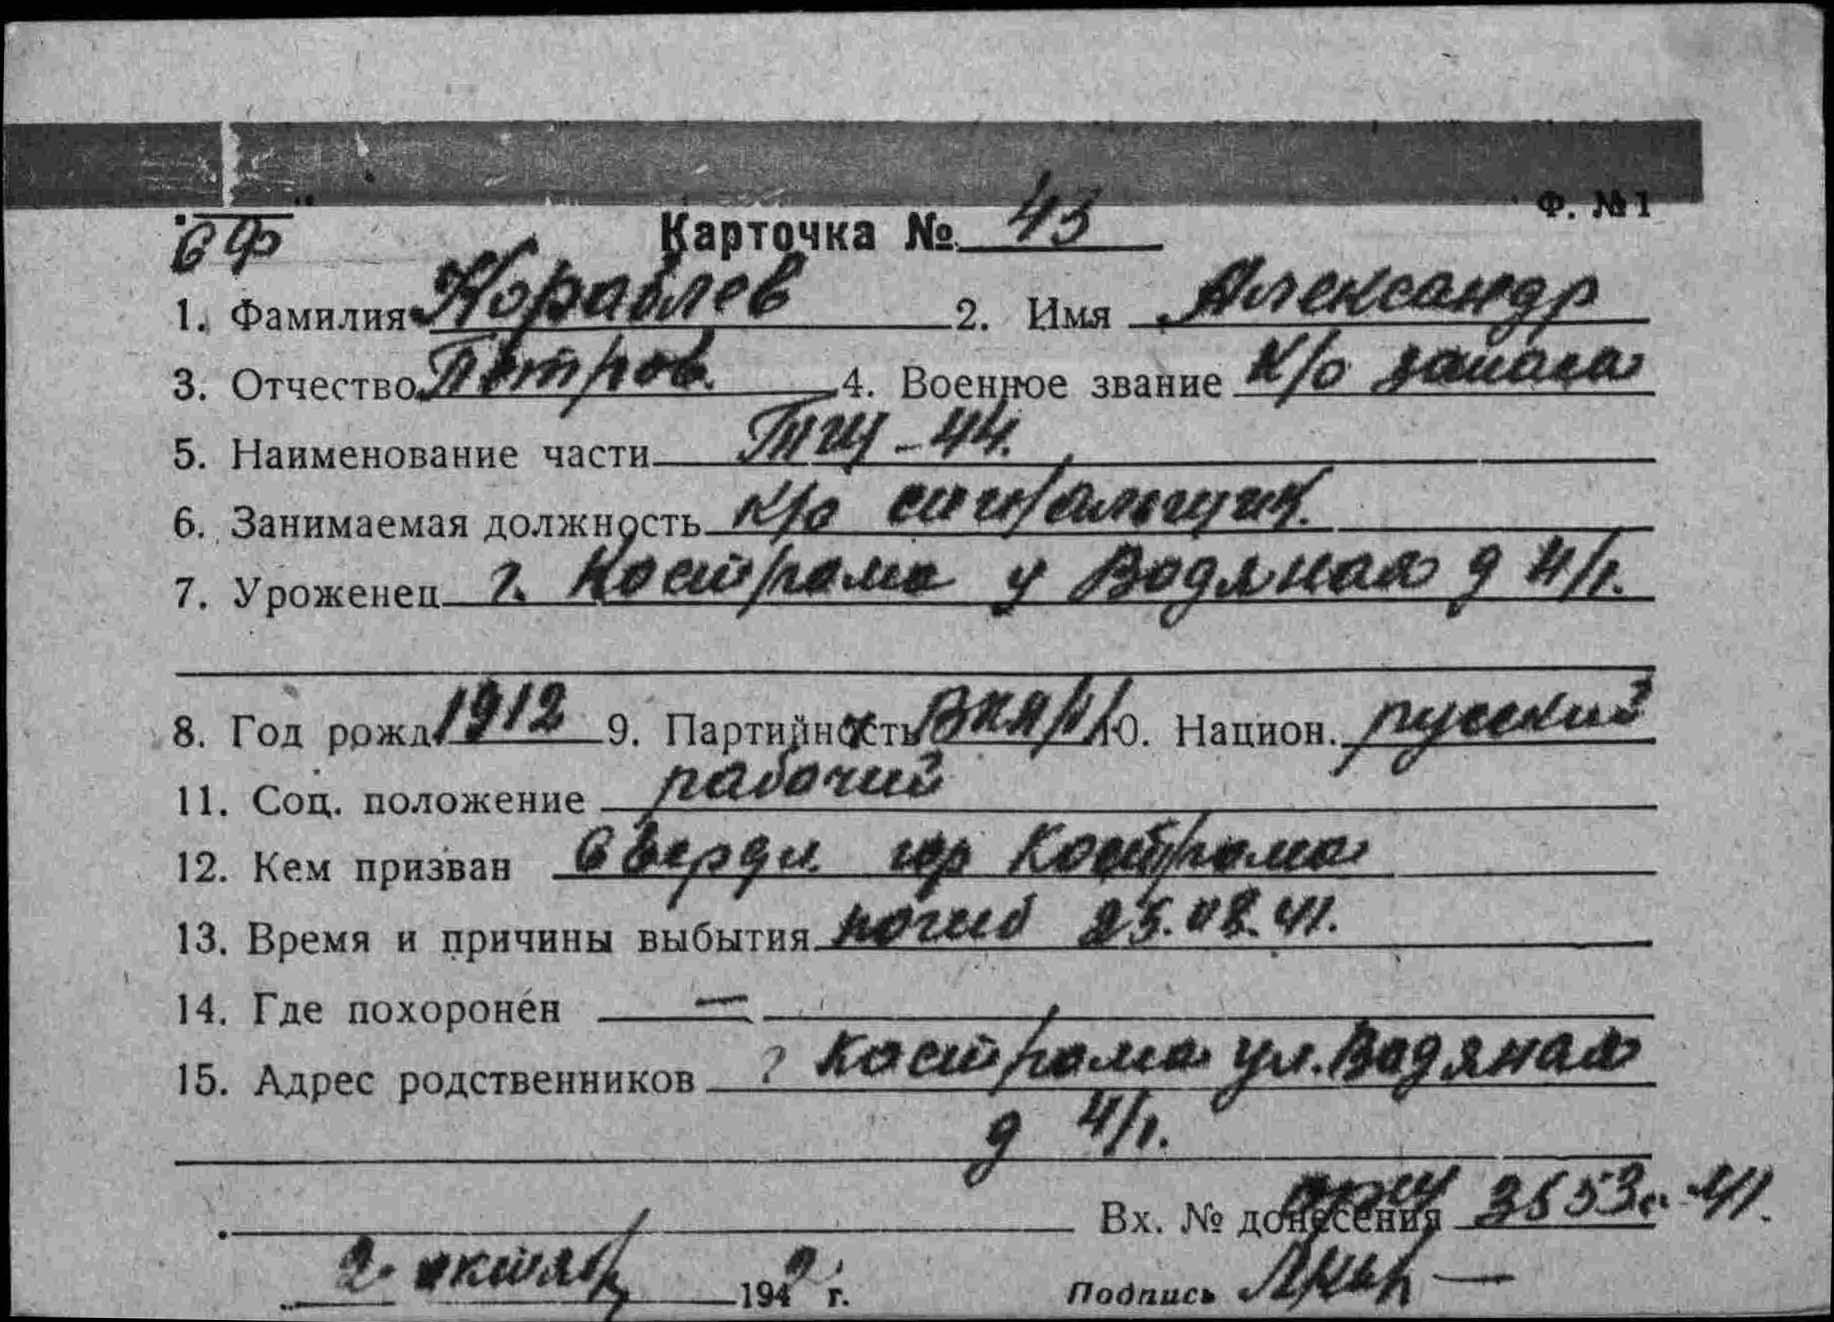 Ф. №1
СФ Карточка № 43
1. Фамилия Кораблев 2. Имя Александр
3. Отчество Петров. 4. Военное звание к/о запаса
5. Наименование части ТЩ-44.
6. Занимаемая должность к/о сигнальщик.
7. Уроженец г. Кострома у Водяная д 4/1.
8. Год рожд. 1912 9. Партийность ВКП/б/ 10. Национ. русский
11. Соц. положение рабочий
12. Кем призван Свердл. гор Кострома
13. Время и причины выбытия погиб 25.08.41.
14. Где похоронен —
15. Адрес родственников г Кострома ул. Водяная
д 4/1.
Вх. № донесения 3553с. 41.
2. октябр 194 г. Подпись